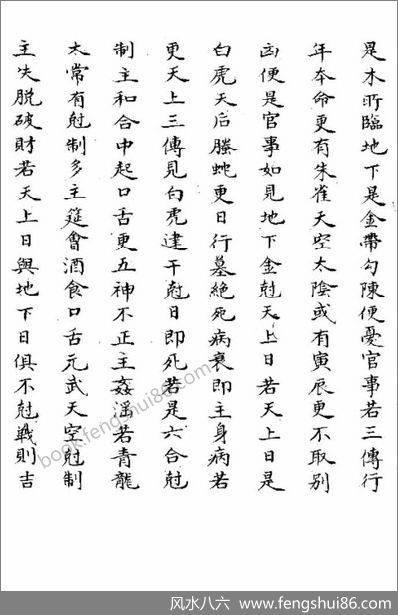 是木所臨地下是金帶勾陳便憂官事若三傳行
年本命更有朱雀天空太陰或有寅辰更不取別
凶便是官事如見地下金尅天上日若天上日是
白虎天后螣蛇更日行墓絶死病衰即主身病若
更天上三傳見白虎建干尅日即死若是六合尅
制主和合中起口舌更五神不正主姦淫若青龍
太常有尅制多主筵會酒食口舌元武天空尅制
主失脱破財若天上日與地下日俱不尅戰則吉
book.fengshui86.com
风水八六 www.fengshui86.com